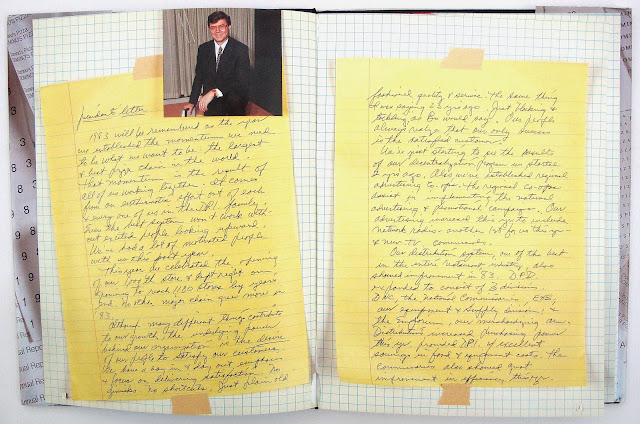 President's letter
1983 will be remembered as the year
we established the momentum we need
to be what we want to be - the largest
& best pizza chain in the world.
That momentum is the result of
all of us working together. It comes
from an enthusiastic effort out of each
& every one of us in the DPI family.
Even the best system won't work with-
out excited people looking upward.
We've had a lot of motivated people
with us this past year.
This year we celebrated the opening
of our 1000th store & kept right on
opening to reach 1120 stores by years
end. No other major chain grew more in
'83.
Although many different things contribute
to our growth, the underlying power
behind our organization is the desire
of our people to satisfy our customers.
We have a day in & day out emphasis
& focus on delivering satisfaction. No
gimmicks. No shortcuts. Just plain old
fashioned quality & service. The same thing
I was saying 23 yrs ago. Just
as Bo would say. Our people
always realize that our only success
is the satisfied customer.
We're just starting to see the results
of our decentralization program we started
2 yrs ago. Also we've established regional
advertising co-ops. The regional co-ops
assist in implementing the national
advertising & promotional campaigns. Our
advertising increased this yr. to include
network radio - another 1st for us this yr -
& new TV commercials.
Our distribution system, one of the best
in the entire restaurant industry, also
showed improvement in '83. DPD
expanded to consist of 3 divisions.
DNC, the National Commissaries, E&S,
our equipment & supply division, &
the Emporium, our merchandising arm.
Distribution's increased purchasing power
this yr. provided DPI w/ excellent
savings in food & equipment costs. The
commissaries also showed great
improvement in efficiency this yr.